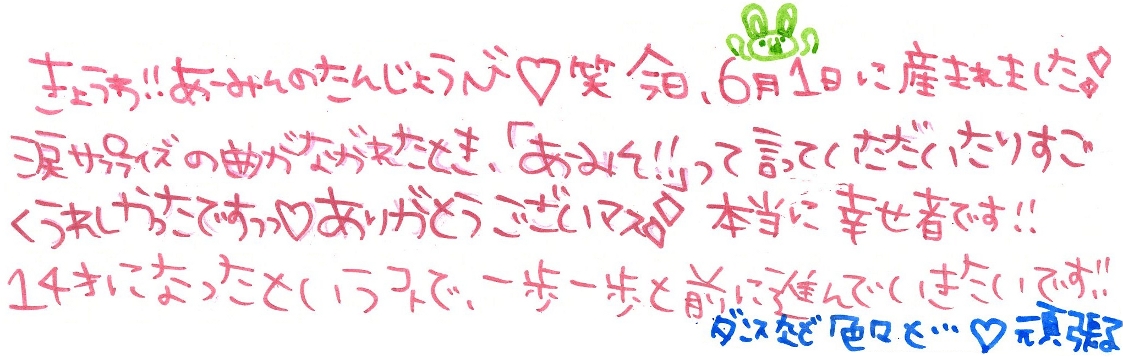 きょうわ!!あーみんのたんじょうび♡笑 今日、6月1日に産まれました!
涙 サプライズの曲がながれたとき、「あーみん!!」って言ってくださいたりすご
くうれしかったですっっ♡ありがとうございマス!! 本当に幸せ者です!!
14才になったというコトで、一歩一歩と前に進んでいきたいです!!
ダンスなど色々と…♡頑張る